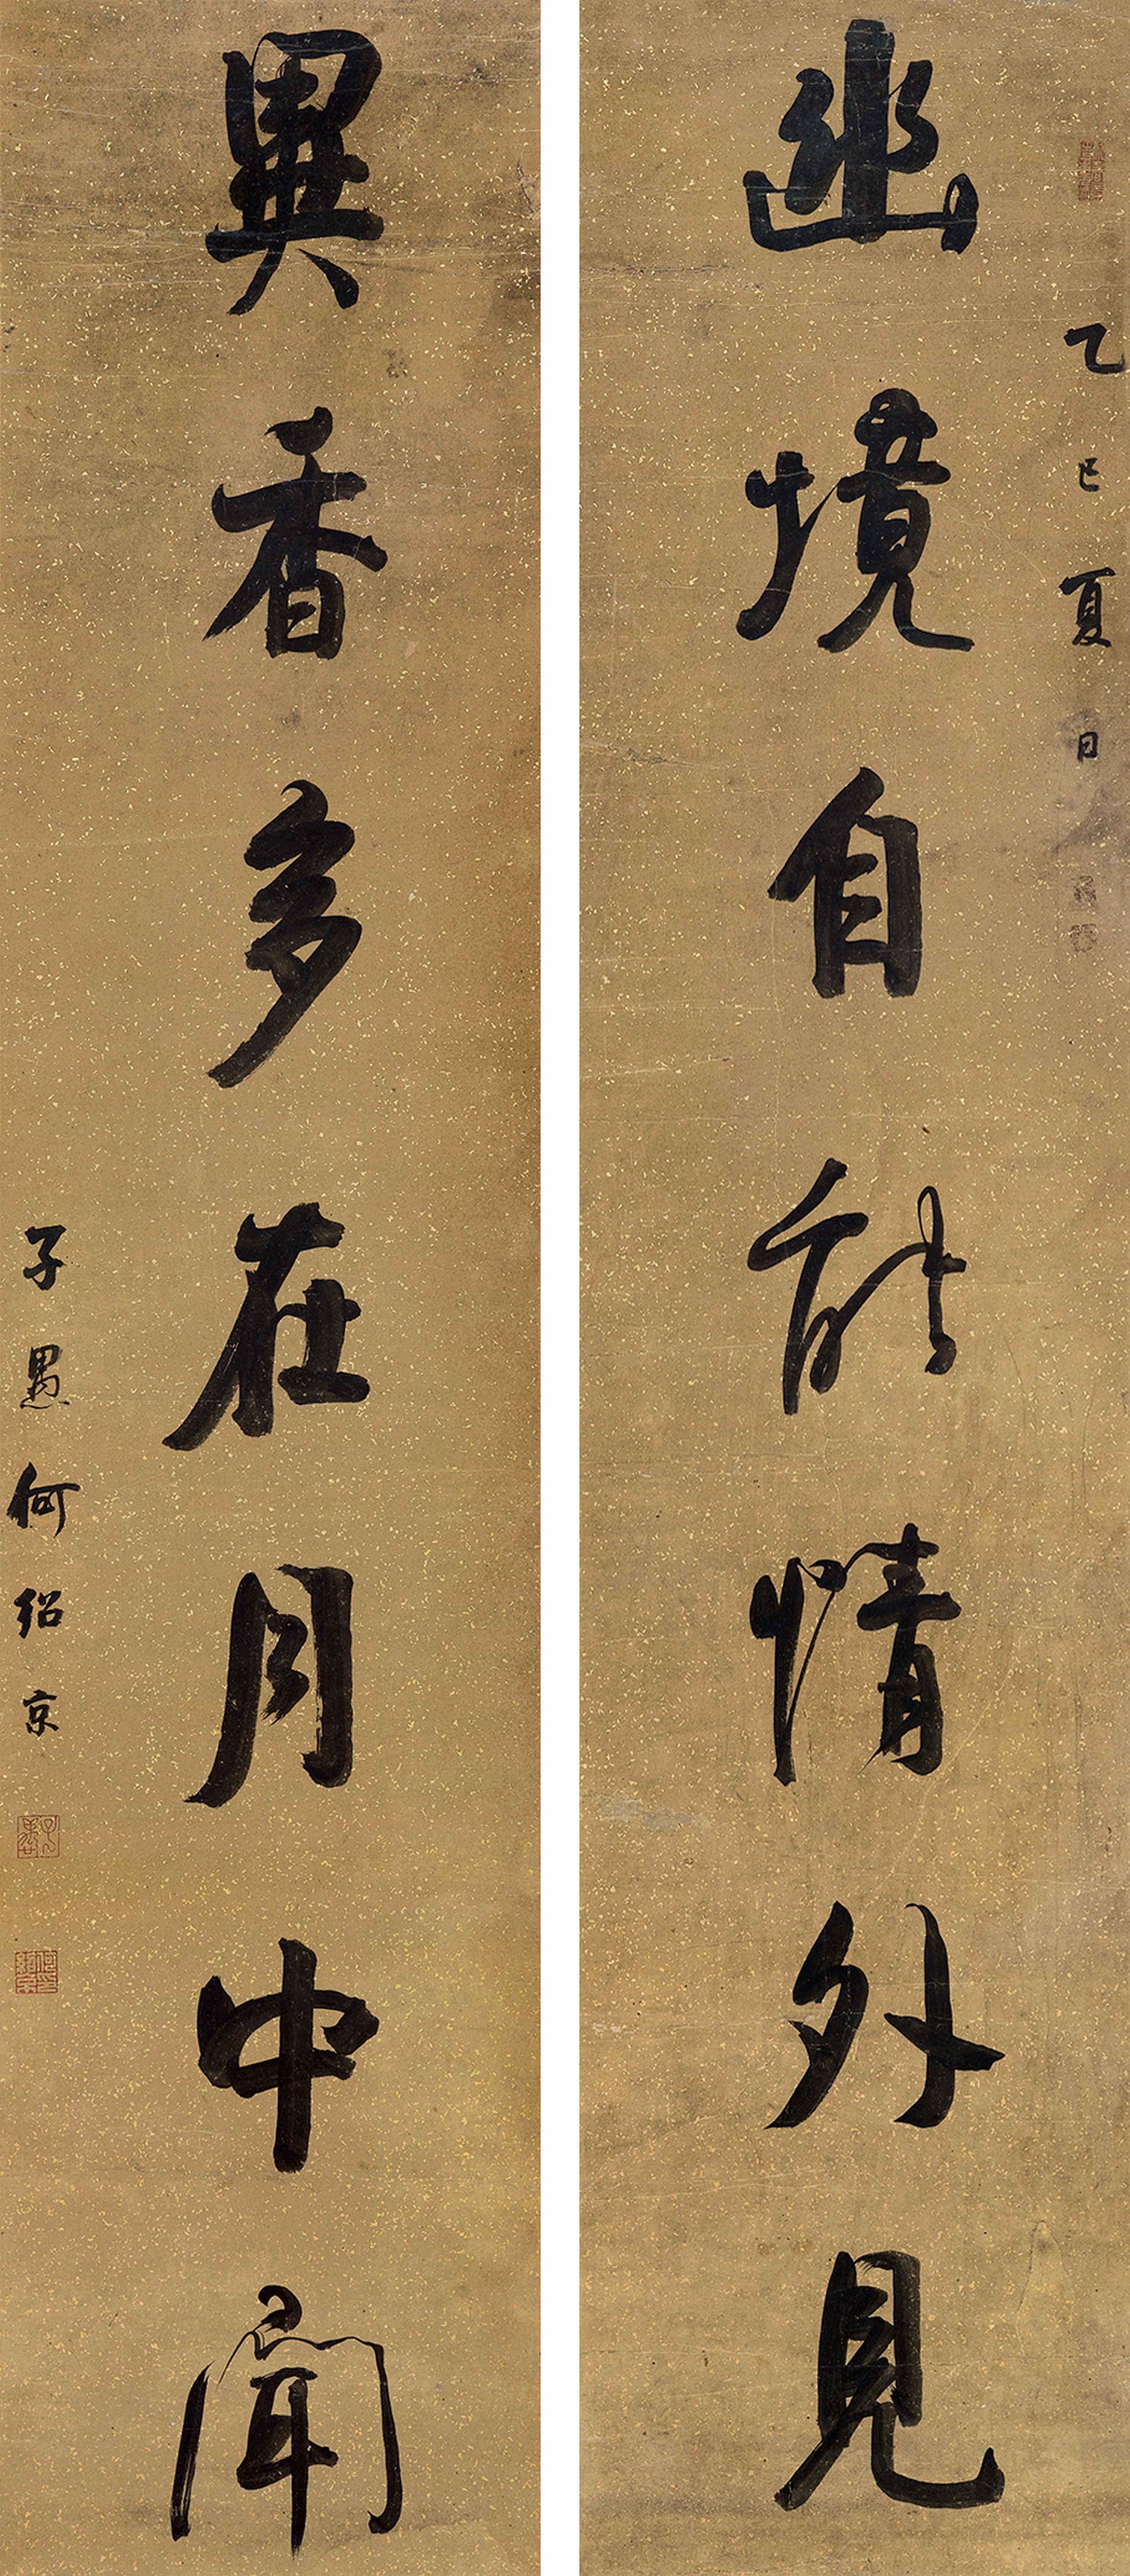 乙巳夏日
幽境自於情外見
異香多在月中聞
子愚何紹京